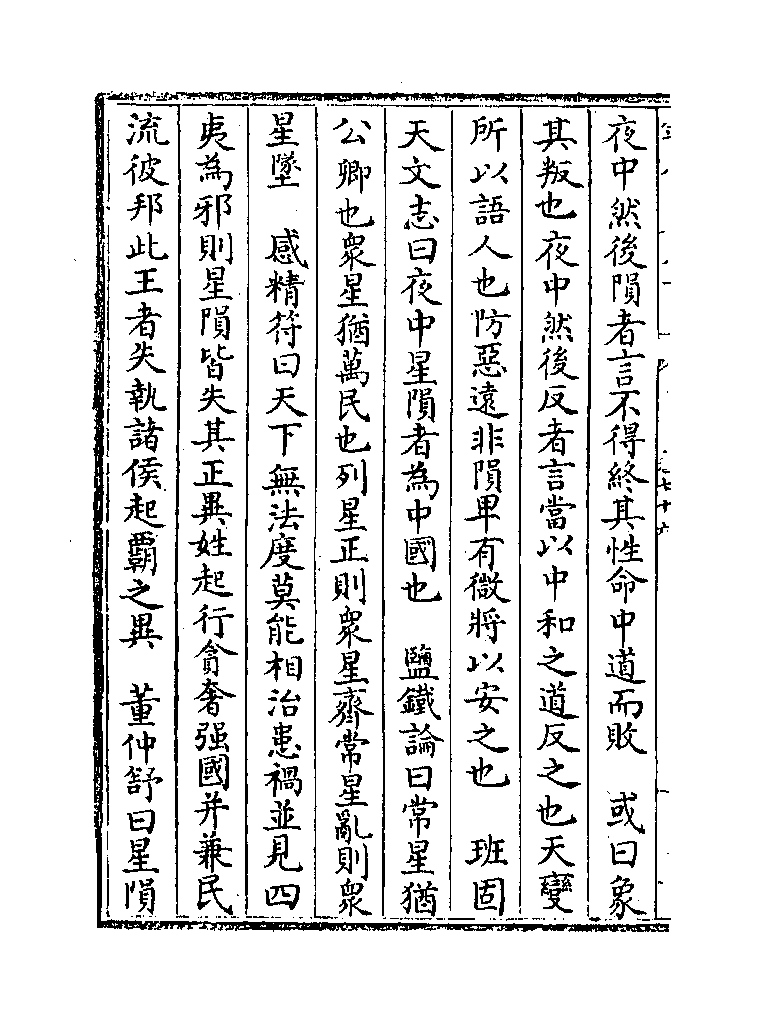 夜中然後隕者言不得終其性命中道而敗　或曰象
其叛也夜中然後反者言當以中和之道反之也天變
所以語人也防惡逺非隕卑有微將以安之也　班固
天文志曰夜中星隕者為中國也　鹽鐵論曰常星猶
公卿也衆星猶萬民也列星正則衆星齊常星亂則衆
星墜　感精符曰天下無法度莫能相治患禍並見四
夷為邪則星隕皆失其正異姓起行貪奢强國并兼民
流彼邦此王者失執諸侯起覇之異　董仲舒曰星隕